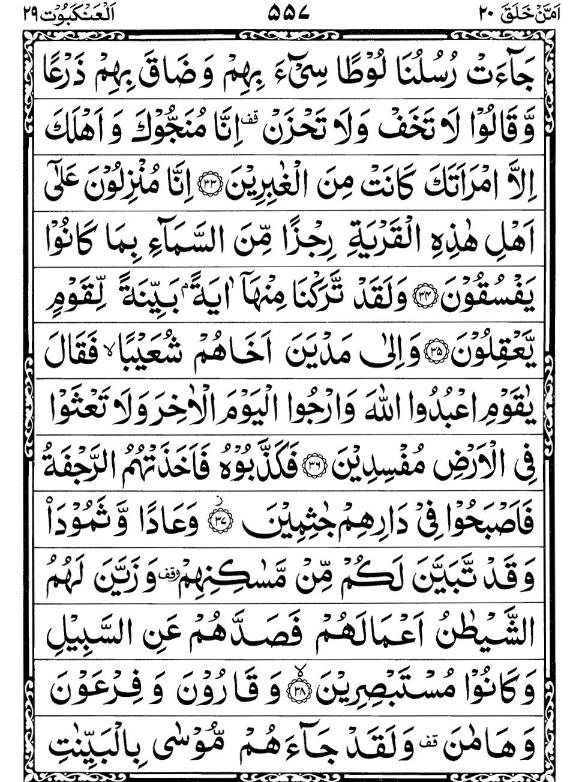 اَمَّنْ خَلَقَ ٢٠ ٥٥٧ اَلْعَنْكَبُوْت ٢٩
جَآءَتْ رُسُلُنَا لُوْطًا سِیْٓءَ بِهِمْ وَ ضَاقَ بِهِمْ ذَرْعًا
وَّ قَالُوْا لَا تَخَفْ وَلَا تَحْزَنْ قف اِنَّا مُنَجُّوْكَ وَ اَهْلَكَ
اِلَّا امْرَاَتَكَ كَانَتْ مِنَ الْغٰبِرِيْنَ ٣٣ اِنَّا مُنْزِلُوْنَ عَلٰٓى
اَهْلِ هٰذِهِ الْقَرْيَةِ رِجْزًا مِّنَ السَّمَآءِ بِمَا كَانُوْا
يَفْسُقُوْنَ ٣٤ وَلَقَدْ تَّرَكْنَا مِنْهَآ اٰيَةًۢ بَيِّنَةً لِّقَوْمٍ
يَّعْقِلُوْنَ ٣٥ وَاِلٰى مَدْيَنَ اَخَاهُمْ شُعَيْبًا ۙ فَقَالَ
يٰقَوْمِ اعْبُدُوا اللّٰهَ وَارْجُوا الْيَوْمَ الْاٰخِرَ وَلَا تَعْثَوْا
فِی الْاَرْضِ مُفْسِدِيْنَ ٣٦ فَكَذَّبُوْهُ فَاَخَذَتْهُمُ الرَّجْفَةُ
فَاَصْبَحُوْا فِیْ دَارِهِمْ جٰثِمِيْنَ ز ٣٧ وَعَادًا وَّ ثَمُوْدَا۟
وَ قَدْ تَّبَيَّنَ لَكُمْ مِّنْ مَّسٰكِنِهِمْ وقف وَ زَيَّنَ لَهُمُ
الشَّيْطٰنُ اَعْمَالَهُمْ فَصَدَّهُمْ عَنِ السَّبِيْلِ
وَ كَانُوْا مُسْتَبْصِرِيْنَ ۙ ٣٨ وَ قَارُوْنَ وَ فِرْعَوْنَ
وَ هَامٰنَ قف وَلَقَدْ جَآءَهُمْ مُّوْسٰى بِالْبَيِّنٰتِ